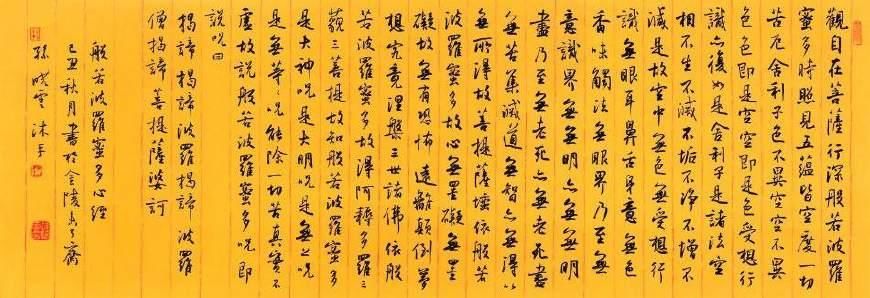 觀自在菩薩行深般若波羅
蜜多時照見五蘊皆空度一切
苦厄舍利子色不異空空不異
色色即是空空即是色受想行
識亦復如是舍利子是諸法空
相不生不滅不垢不淨不增不
減是故空中無色無受想行
識無眼耳鼻舌身意無色
香味觸法無眼界乃至無
意識界無無明亦無無明
盡乃至無老死亦無老死盡
無苦集滅道無智亦無得以
無所得故菩提薩埵依般若
波羅蜜多故心無罣礙無罣
礙故無有恐怖遠離顛倒夢
想究竟涅槃三世諸佛依般
若波羅蜜多故得阿耨多羅三
藐三菩提故知般若波羅蜜多
是大神咒是大明咒是無上咒
是無等〻咒能除一切苦真實不
虛故說般若波羅蜜多咒即
說咒曰
揭諦揭諦波羅揭諦波羅
僧揭諦菩提薩婆訶
般若波羅蜜多心經
己丑秋月書於金陵齋
孫曉雲沐手